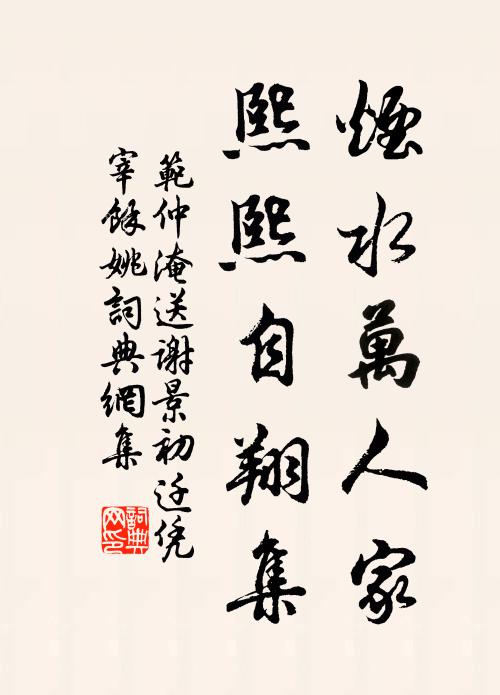 煙水萬人家
熙熙自翔集
範仲淹送謝景初迁凭
宰餘姚詞典網集
詞典網印